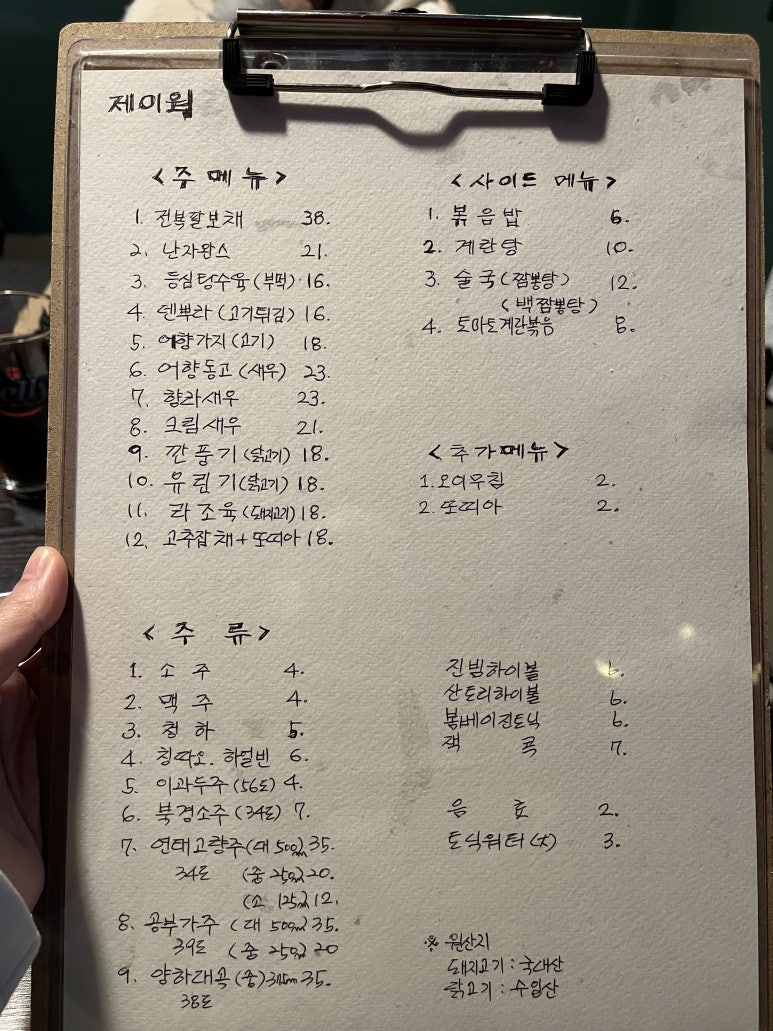 제이웍
<주 메뉴>
1. 전복팔보채 38.
2. 난자완스 21.
3. 등심탕수육(부먹) 16.
4. 덴뿌라(고기튀김) 16.
5. 어향가지(고기) 18.
6. 어향동고(새우) 23.
7. 향라새우 23.
8. 크림새우 21.
9. 깐풍기(닭고기) 18.
10. 유림기(닭고기) 18.
11. 라조육(돼지고기) 18.
12. 고추잡채+또띠아 18.
<사이드 메뉴>
1. 볶음밥 6.
2. 계란탕 10.
3. 술국(짬뽕탕) 12.
(백짬뽕탕)
4. 토마토계란볶음 8.
<추가메뉴>
1. 오이무침 2.
2. 또띠아 2.
<주 류>
1. 소 주 4.
2. 맥 주 4.
3. 청 하 5.
4. 칭따오. 하얼빈 6.
5. 이과두주(56도) 4.
6. 북경소주(34도) 7.
7. 연태고량주(대 500ml) 35.
34도 (중 250ml) 20.
(소 125ml) 12.
8. 공부가주 (대 500ml) 35.
39도 (중 250ml) 20
9. 양하대곡(중)375ml 35.
38도
진빔하이볼 6.
산토리하이볼 6.
봄베이진토닉 6.
잭 콕 7.
음 료 2.
토닉워터(大) 3.
※ 원산지
돼지고기 : 국내산
닭고기 : 수입산